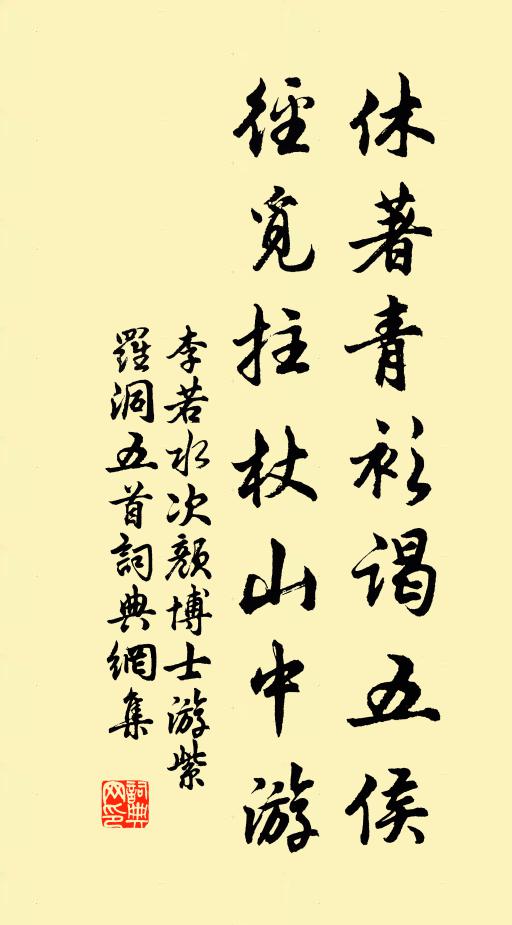 休著青衫谒五侯
径覓拄杖山中游
李若水次颜博士游紫
羅洞五首詞典網集
詞典
网印